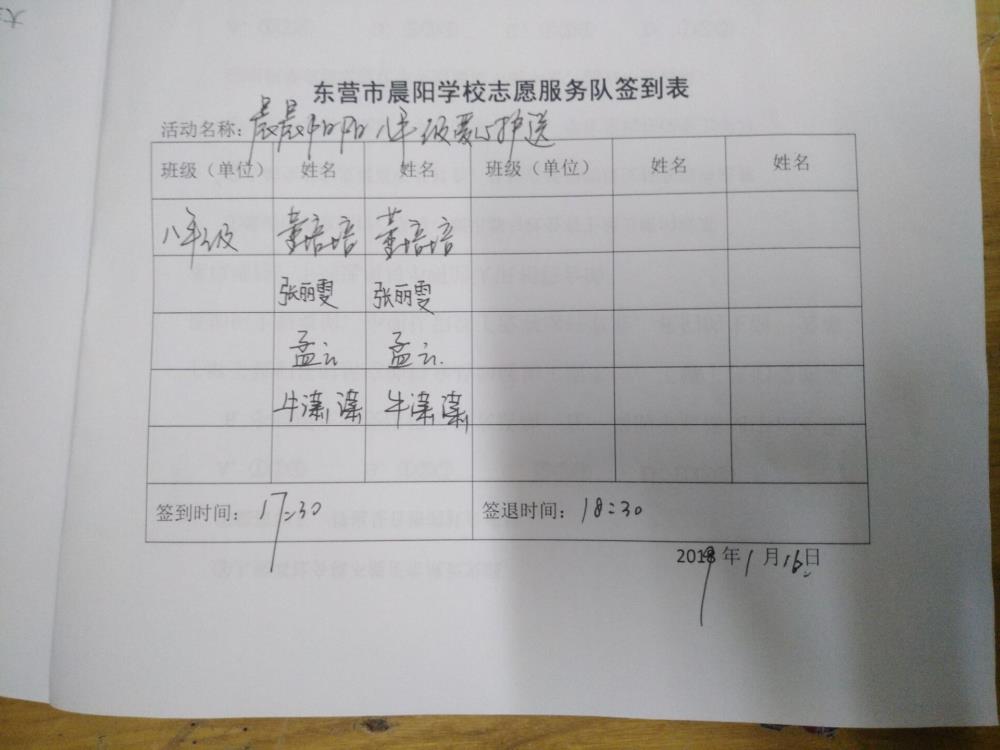 东营市晨阳学校志愿服务队签到表
活动名称：晨晨阳阳八年级爱心护送
班级（单位） 姓名 姓名 班级（单位） 姓名 姓名
八年级 董培培 董培培
张丽雯 张丽雯
孟云 孟云
牛潆潆 牛潆潆
签到时间：17:30 签退时间：18:30
2019年1月16日